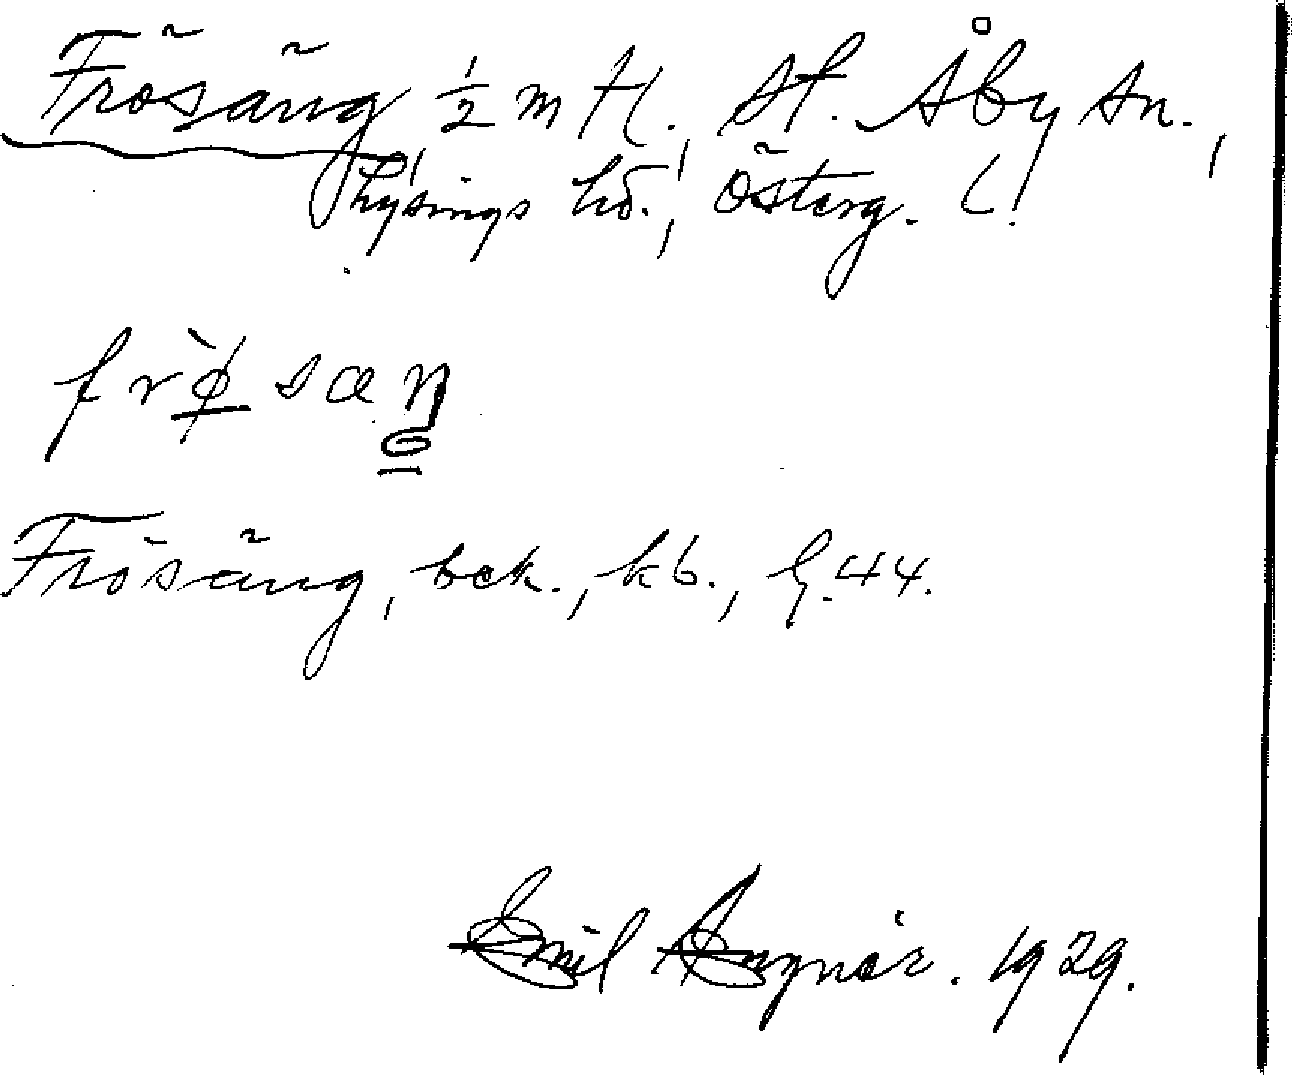 Frösäng, ½ m tl., St. Åby sn.,
Lysings hd., Österg. l.
frø̀sæŋ
Frösäng, bek., kb., Gj. 44.
Emil 1929.